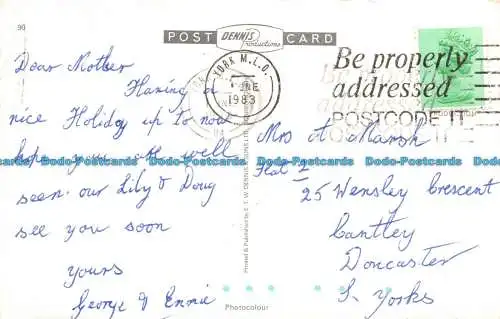 90
POST DENNIS Productions CARD
Dear Mother
Having a
nice Holiday up to now
hope you are well
seen our Lily & Doug
see you soon
yours
George & Ennie
YORK M.L.O.
JUNE
1983
Be properly
addressed
POSTCODE IT
Mrs A Marsh
Flat 1
25 Wensley Crescent
Cantley
Doncaster
S. Yorks
Printed & Published by E. T. W. DENNIS
Photocolour
Dodo-Postcards Dodo-Postcards Dodo-Postcards Dodo-Postcards Dodo-Postcards